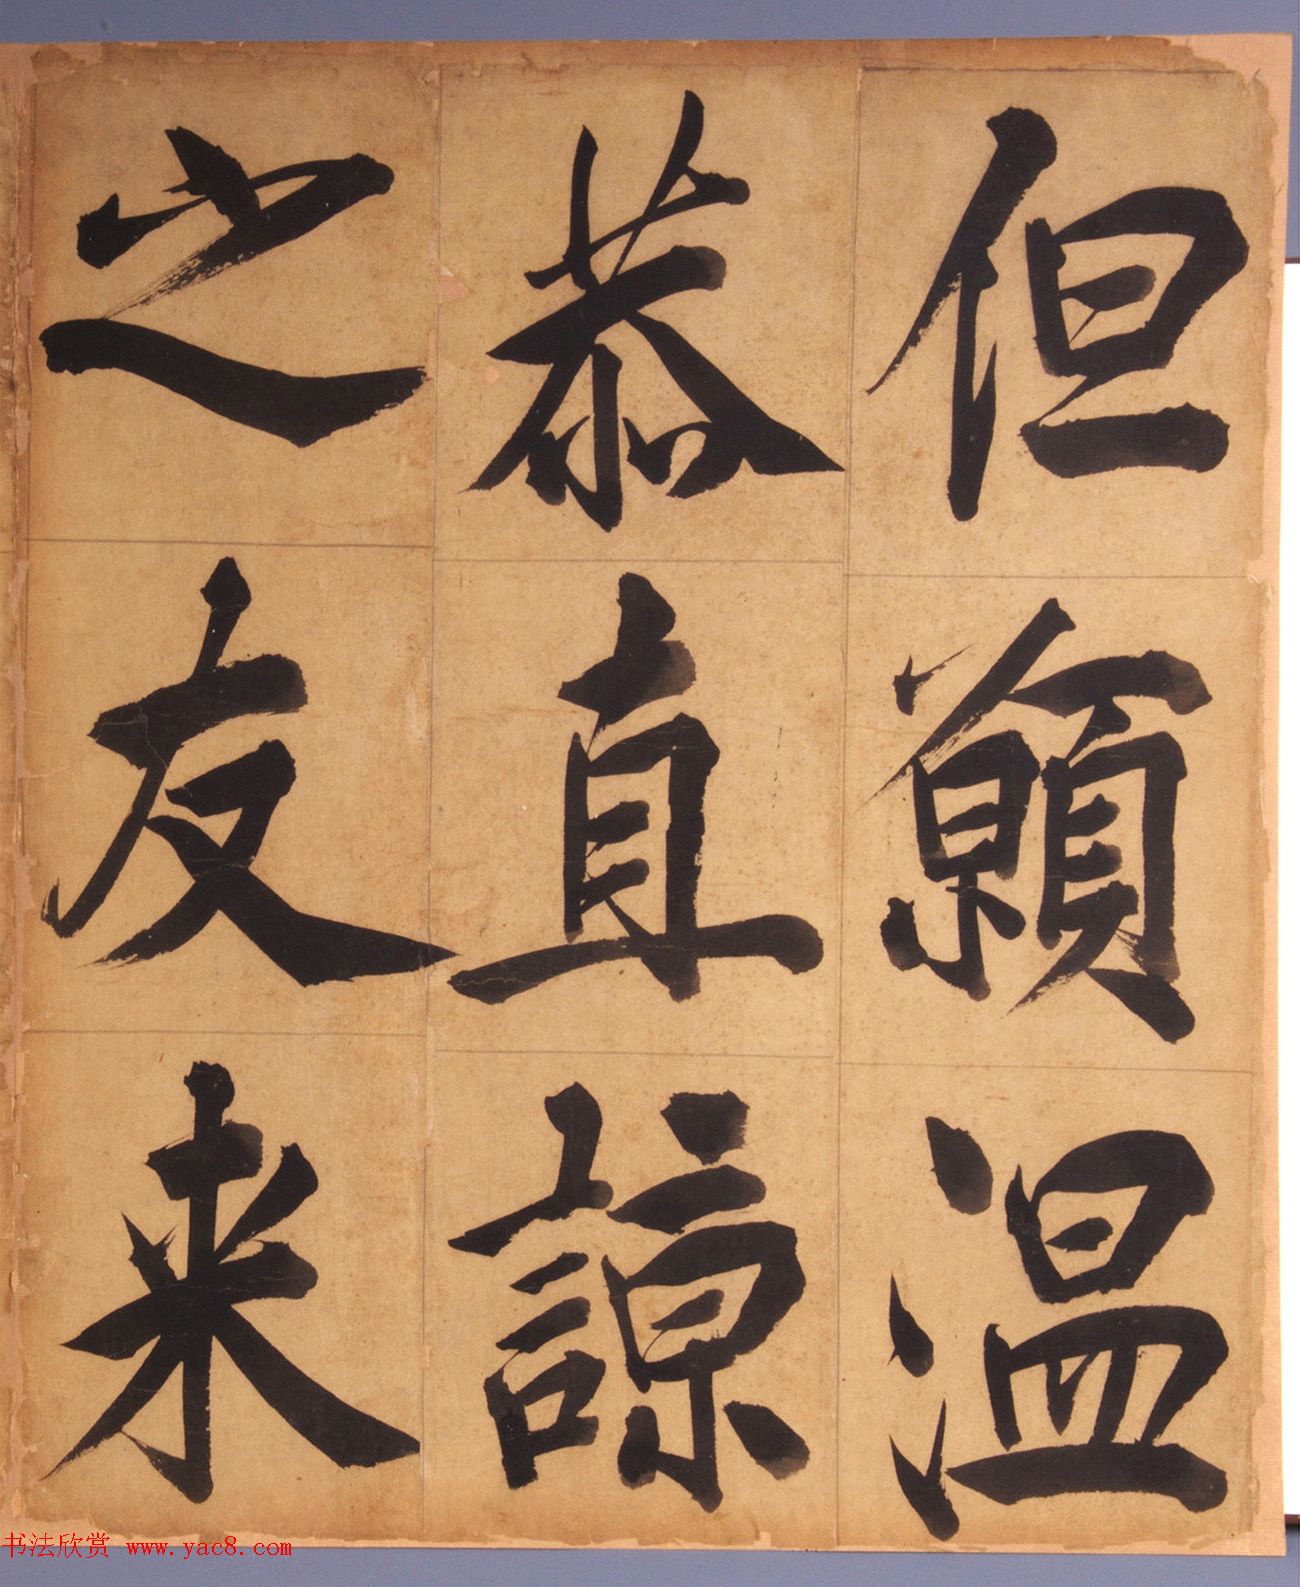 但願温
恭直諒
之友来
书法欣赏 www.yac8.com